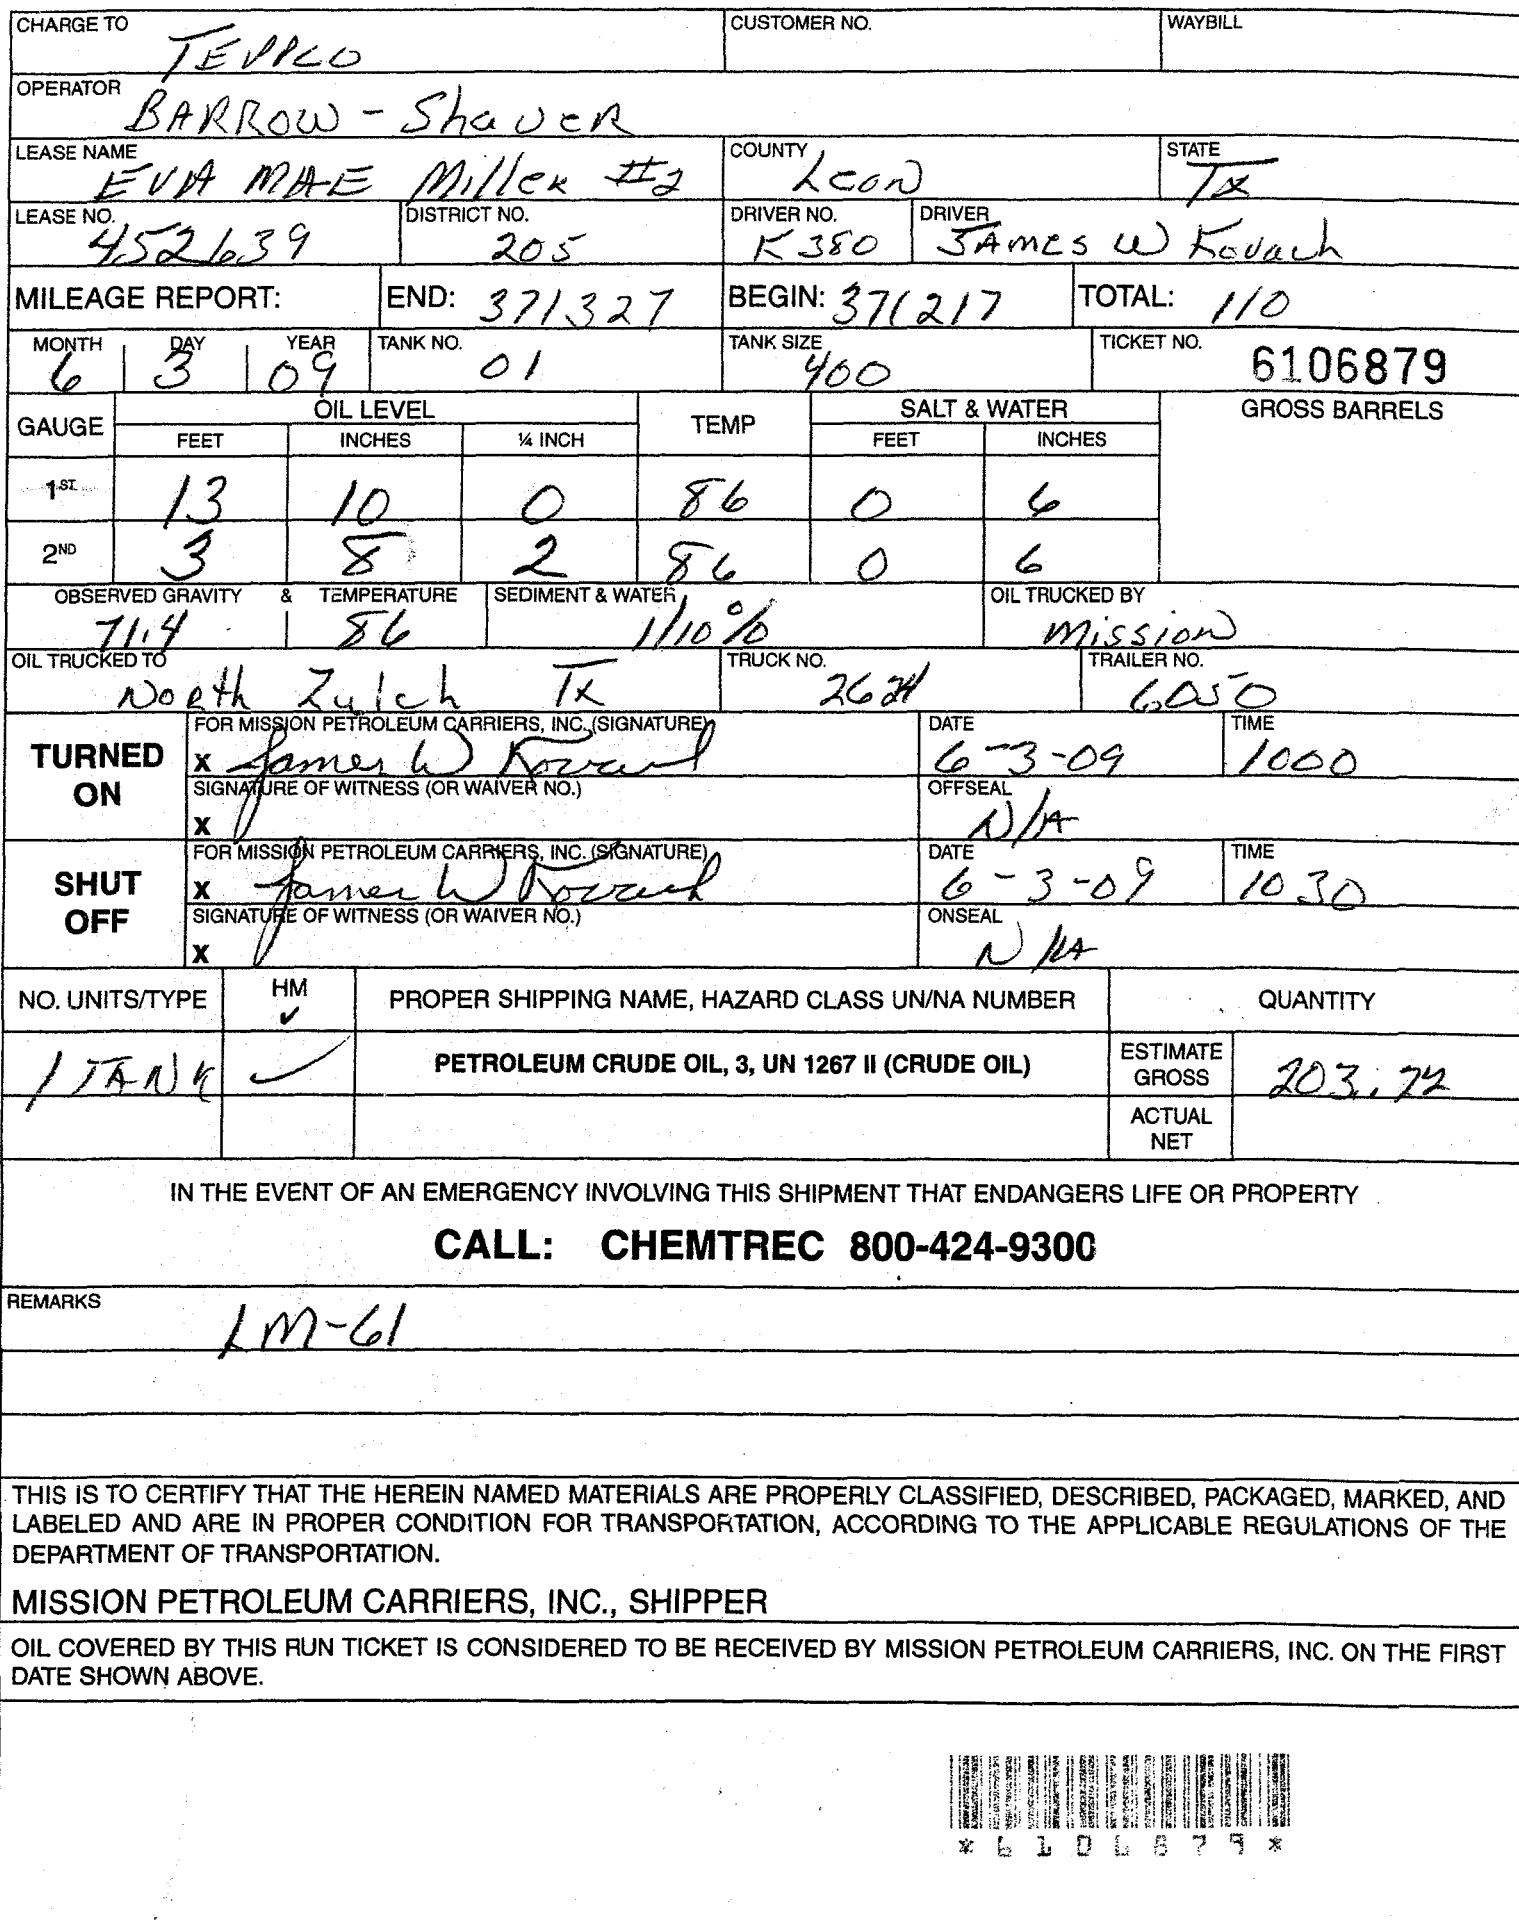 CHARGE TO TEPPCO CUSTOMER NO. WAYBILL
OPERATOR BARROW - ShaveR
LEASE NAME EVA MAE Miller #2 COUNTY Leon STATE TX
LEASE NO. 452639 DISTRICT NO. 205 DRIVER NO. K380 DRIVER JAMES W Kovach
MILEAGE REPORT: END: 371327 BEGIN: 371217 TOTAL: 110
MONTH 6 DAY 3 YEAR 09 TANK NO. 01 TANK SIZE 400 TICKET NO. 6106879
GAUGE OIL LEVEL TEMP SALT & WATER GROSS BARRELS
FEET INCHES ¼ INCH FEET INCHES
1ST. 13 10 0 86 0 6
2ND 3 8 2 86 0 6
OBSERVED GRAVITY & TEMPERATURE SEDIMENT & WATER OIL TRUCKED BY
71.4 86 1/10% Mission
OIL TRUCKED TO North Zulch TX TRUCK NO. TRAILER NO. 6050
TURNED ON
FOR MISSION PETROLEUM CARRIERS, INC. (SIGNATURE) DATE TIME
X James W Kovach 6-3-09 1000
SIGNATURE OF WITNESS (OR WAIVER NO.) OFFSEAL
X N/A
SHUT OFF
FOR MISSION PETROLEUM CARRIERS, INC. (SIGNATURE) DATE TIME
X James W Kovach 6-3-09 1030
SIGNATURE OF WITNESS (OR WAIVER NO.) ONSEAL
X N/A
NO. UNITS/TYPE HM ✓ PROPER SHIPPING NAME, HAZARD CLASS UN/NA NUMBER QUANTITY
1 TANK ✓ PETROLEUM CRUDE OIL, 3, UN 1267 II (CRUDE OIL) ESTIMATE GROSS 203.72
ACTUAL NET
IN THE EVENT OF AN EMERGENCY INVOLVING THIS SHIPMENT THAT ENDANGERS LIFE OR PROPERTY
CALL: CHEMTREC 800-424-9300
REMARKS LM-61
THIS IS TO CERTIFY THAT THE HEREIN NAMED MATERIALS ARE PROPERLY CLASSIFIED, DESCRIBED, PACKAGED, MARKED, AND
LABELED AND ARE IN PROPER CONDITION FOR TRANSPORTATION, ACCORDING TO THE APPLICABLE REGULATIONS OF THE
DEPARTMENT OF TRANSPORTATION.
MISSION PETROLEUM CARRIERS, INC., SHIPPER
OIL COVERED BY THIS RUN TICKET IS CONSIDERED TO BE RECEIVED BY MISSION PETROLEUM CARRIERS, INC. ON THE FIRST
DATE SHOWN ABOVE.
*6106879*